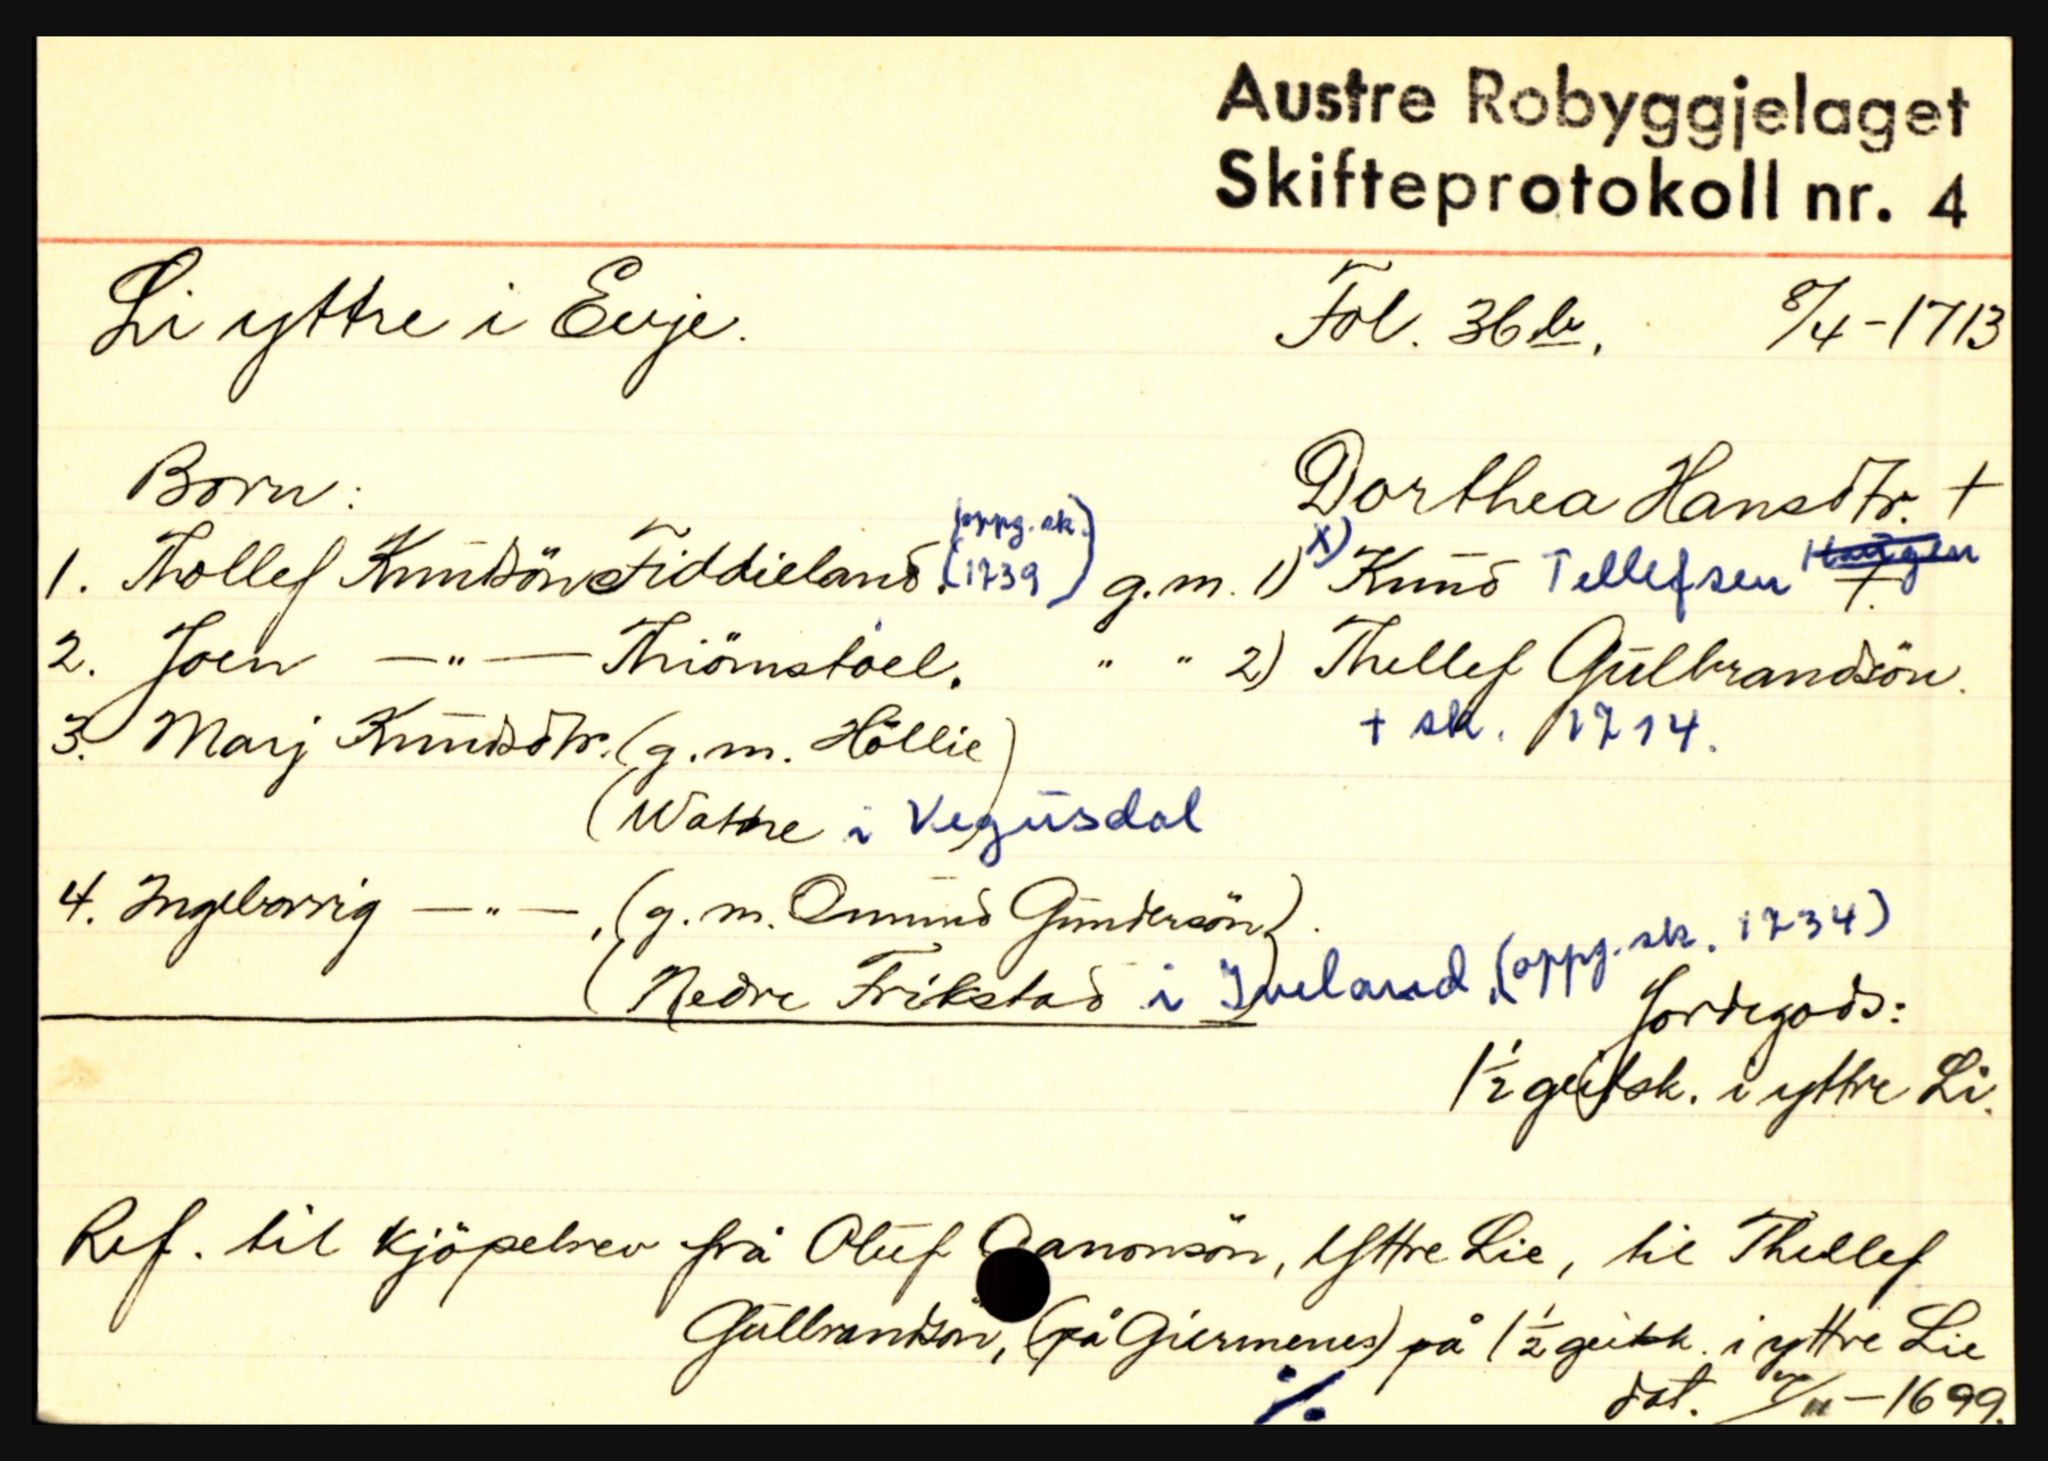 Austre Robyggjelaget
Skifteprotokoll nr. 4
Li yttre i Evje. Fol. 36 b. 8/4-1713
Born: Dorthea Hansdtr. +
1. Thollef Knudsön Fiddieland. (oppg. sk. 1739) g.m. 1) x) Knud Tellefsen Haugen +.
2. Joen —"— Thiömstoel. " " 2) Thellef Gulbrandsön.
3. Marj Knudsdtr. (g.m. Höllie) + sk. 1714.
(Watne i Vegusdal
4. Ingeborrig —"—, (g.m. Omund Gundersön).
(Nedre Frikstad) i Iveland, (oppg. sk. 1734)
Jordegods:
1½ geitsk. i yttre Li.
Ref. til kjöpebrev frå Oluf Aanonsön, Yttre Lie, til Thellef
Gulbrandsön, (på Giermenes) på 1½ geitsk. i yttre Lie
dat. /11-1699.
·/.